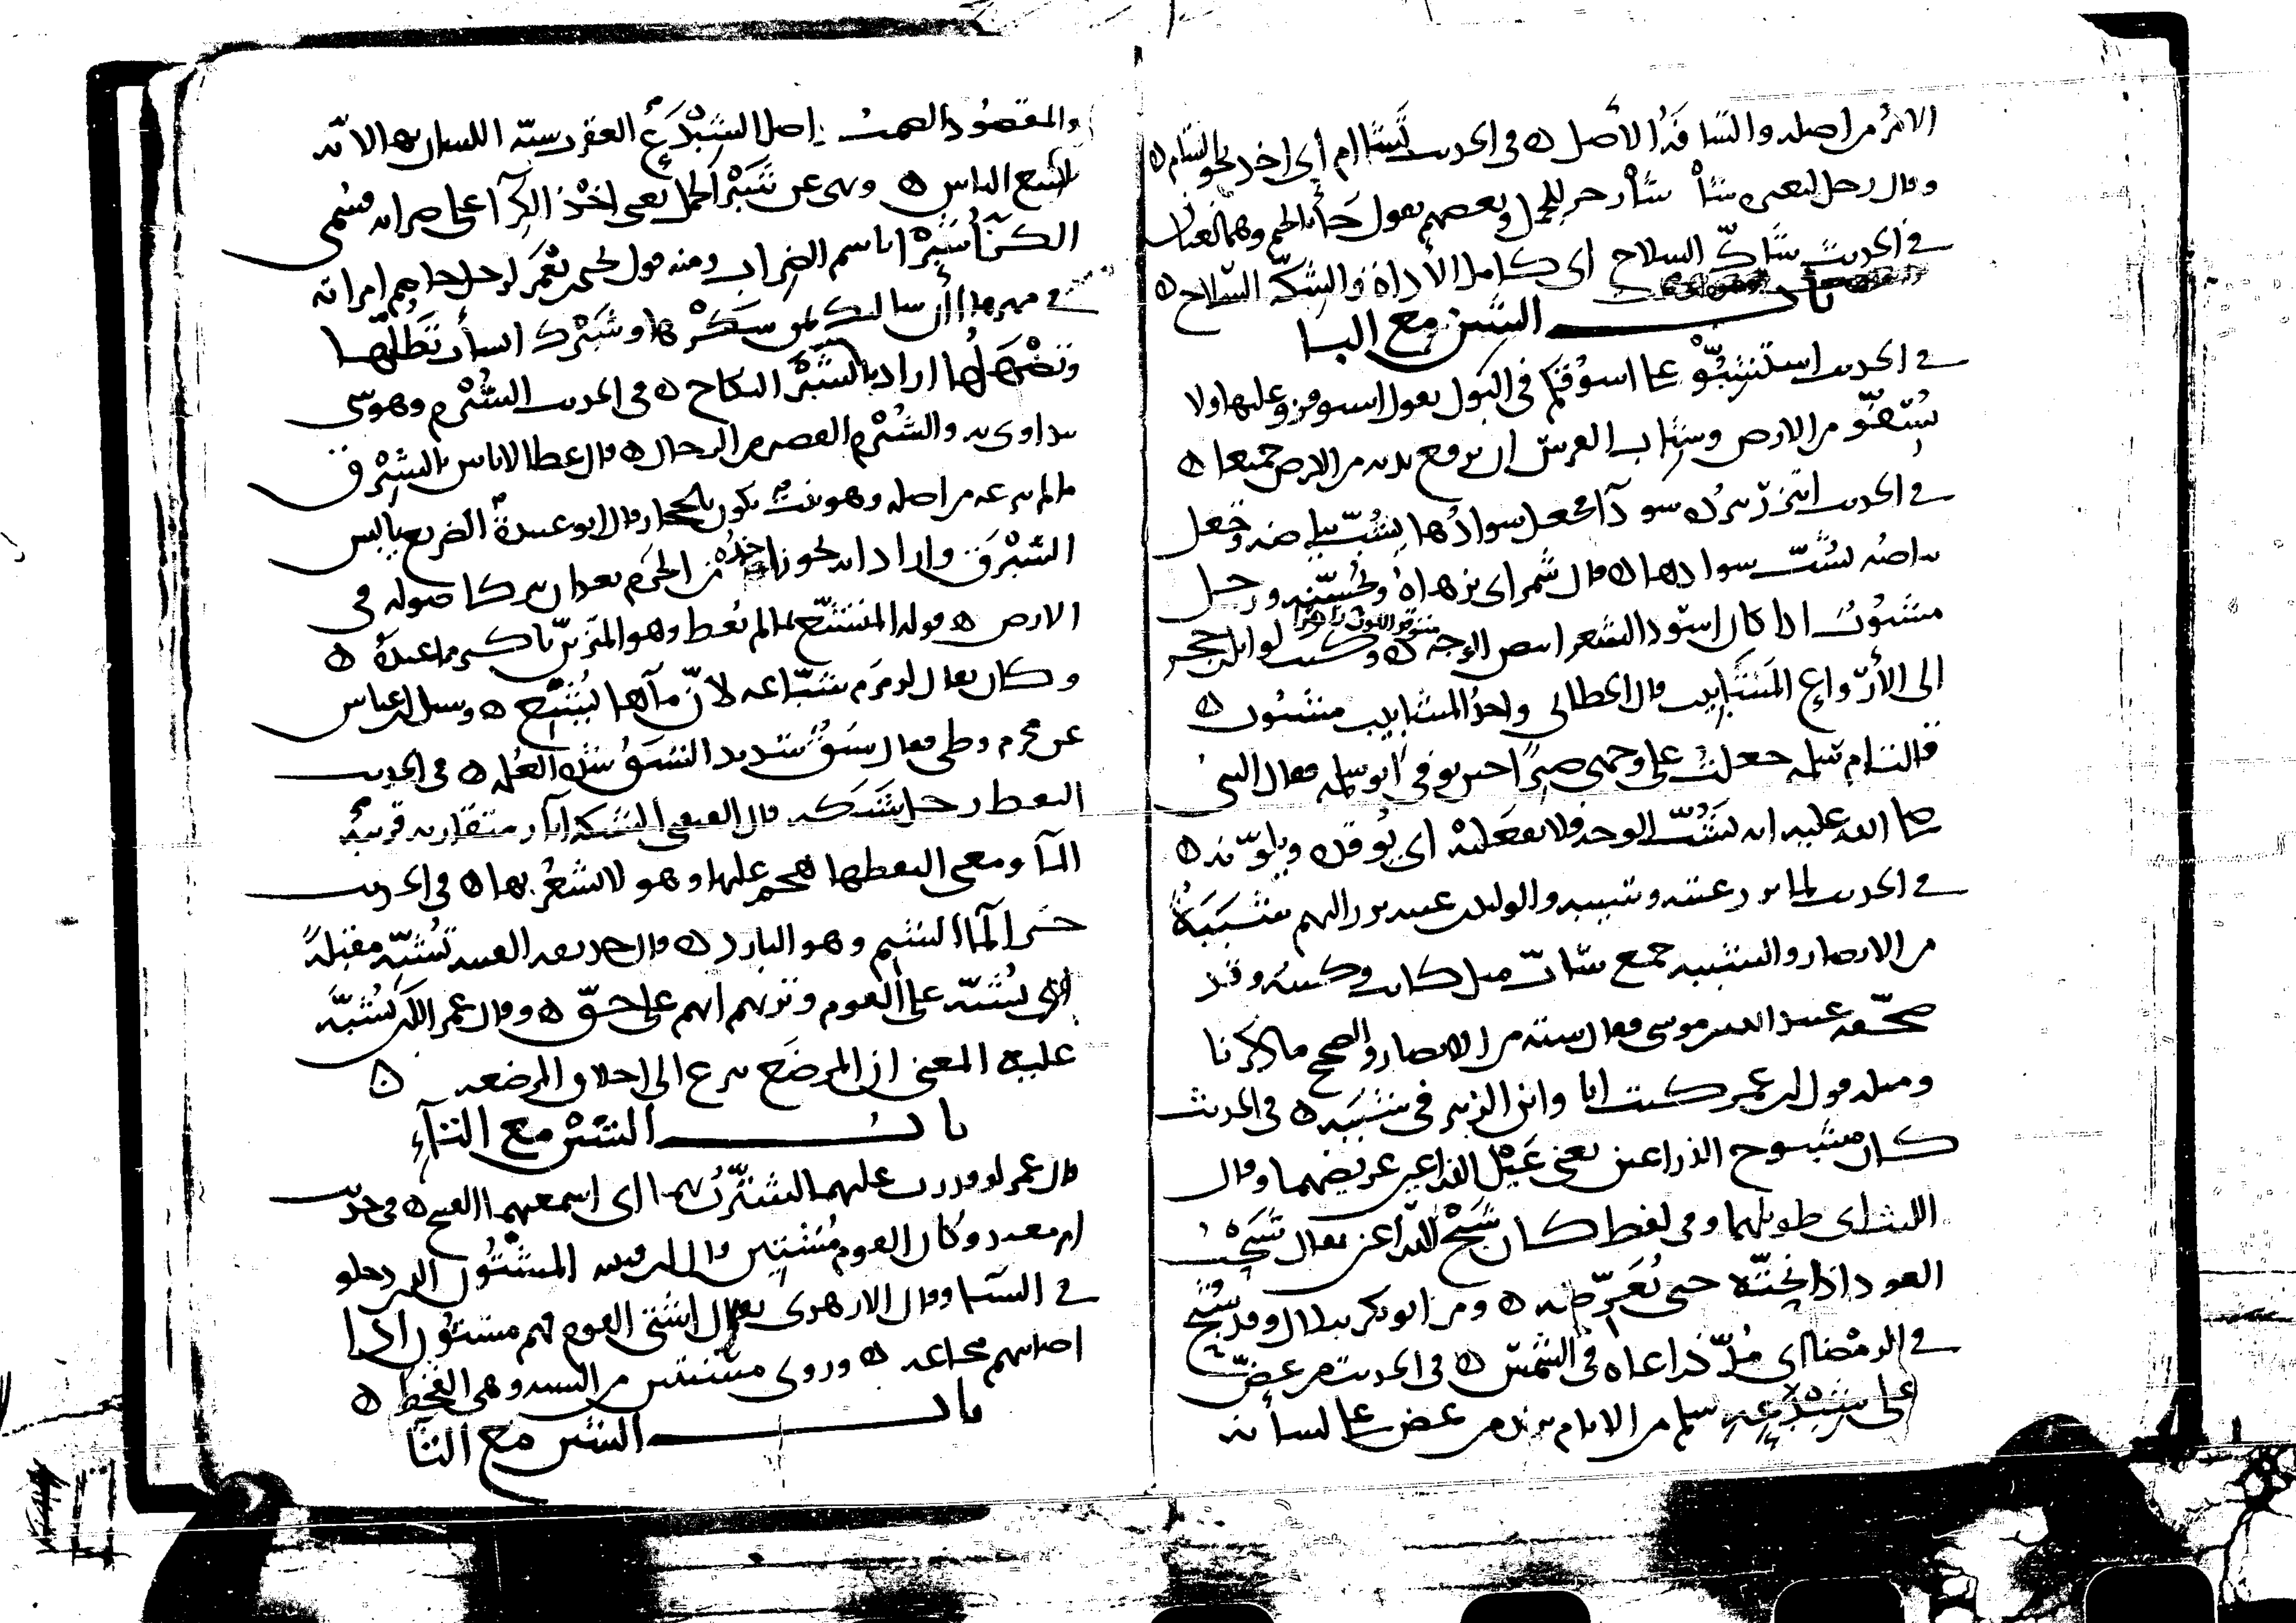 الأمر من أصله والشافة الأصل ه في الحديث تشاءم أي أخذ نحو الشام ه
وقال رجل لبعيره شأ شأ زجر للجمل وبعضهم يقول جأ بالجيم وهما لغتان
في الحديث شاك السلاح أي كامل الأداة والشكة السلاح ه
باب الشين مع الباء
في الحديث استشبوا على أسوقكم في البول يقول استوفزوا عليها ولا
تستقروا من الأرض وشباب الفرس أن يرفع يديه من الأرض جميعا ه
في الحديث ائتزر ببردة سوداء فجعل سوادها يشب بياضه وجعل
بياضه يشب سوادها ه قال شمر أي يزهاه ويحسنه ورجل
مشبوب إذا كان أسود الشعر أبيض الوجه ه وكتب لوائل بن حجر
متوقد اللون زاهرا
إلى الأرواع المشابيب قال الخطابي واحد المشابيب مشبوب ه
قالت أم سلمة جعلت على وجهي صبرا حين توفي أبو سلمة فقال النبي
صلى الله عليه إنه يشب الوجه فلا تفعليه أي يوقده ويلونه ه
في الحديث لما برز عتبة وشيبة والوليد برز إليهم شببة
من الأنصار والشببة جمع شاب مثل كاتب وكتبة وقد
صحفه عبيد الله بن موسى فقال ستة من الأنصار والصحيح ما ذكرنا
ومثله قول ابن عمر كنت أنا وابن الزبير في شببة ه في الحديث
كان مشبوح الذراعين يعني عبل الذراعين عريضهما وقال
الليث أي طويلهما وفي لفظ كان شبح الذراعين يقال شبحت
العود إذا نحته حتى تعرضه ه ومر أبو بكر ببلال وقد شبح
في الرمضاء أي مد ذراعاه في الشمس ه في الحديث من عض
على شبدعه سلم من الآثام يريد من عض على لسانه
والمقصود الصمت وأصل الشبدع العقرب شبه اللسان بها لأنه
يلسع الناس ه ونهى عن شبر الجمل يعني أخذ الكراء على ضرابه فسمي
الكراء شبرا باسم الضراب ومنه قول يحيى بن يعمر لرجل خاصم امرأته
في مهرها أأن سألتك ثمن شكرها وشبرك أنشأت تطلها
وتضهلها أراد بالشبر النكاح ه في الحديث الشبرم وهو شيء
يتداوى به والشبرم القصير من الرجال ه قال عطاء لا بأس بالشبرق
ما لم ينزعه من أصله وهو نبت يكون بالحجاز قال أبو عبيدة الضريع يابس
الشبرق وأراد أنه يجوز أخذه من الحرم بعد أن يترك أصوله في
الأرض ه قوله المتشبع بما لم يعط وهو المتزين بأكثر مما عنده ه
وكان يقال لزمزم شباعة لأن ماءها يشبع ه وسئل ابن عباس
عن محرم وطئ فقال شبق شديد الشبق شدة الغلمة ه في الحديث
التقط رجل شبكة قال القتيبي الشبكة آبار متقاربة قريبة
الماء ومعنى التقطها هجم عليها وهو لا يشعر بها ه في الحديث
خير الماء الشبم وهو البارد ه وقال حذيفة الفتنة تشبه مقبلة
أي تشبه على القوم وتريهم أنهم على حق ه وقال عمر اللبن يشبه
عليه المعنى أن المرضع ينزع إلى أخلاق المرضعة ه
باب الشين مع التاء
قال عمر لو قدرت عليهما لشترت بهما أي أسمعتهما القبيح ه في حديث
أم معبد وكان القوم مشتين قال ابن قتيبة المشتون الذين دخلوا
في الشتاء وقال الأزهري يقال أشتى القوم فهم مشتون إذا
أصابهم مجاعة ه وروي مسنتين من السنة وهي القحط ه
باب الشين مع الثاء